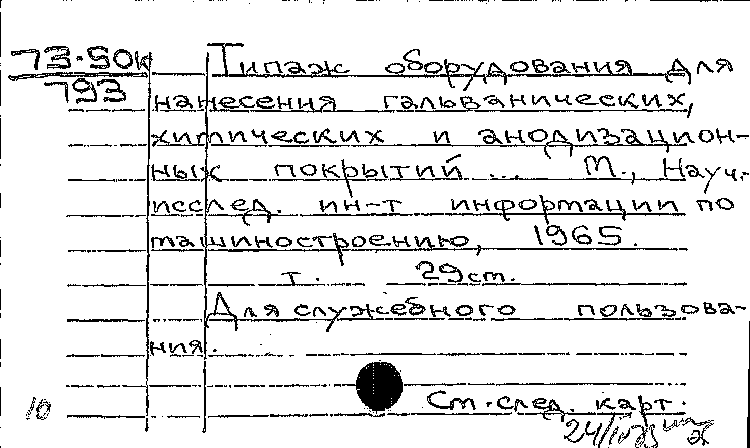 73.50к Типаж оборудования для
793
нанесения гальванических,
химических и анодизацион-
ных покрытий... М., Науч.-
исслед. ин-т информации по
машиностроению, 1965.
т. 29см.
Для служебного пользова-
ния.
См. след. карт.
10